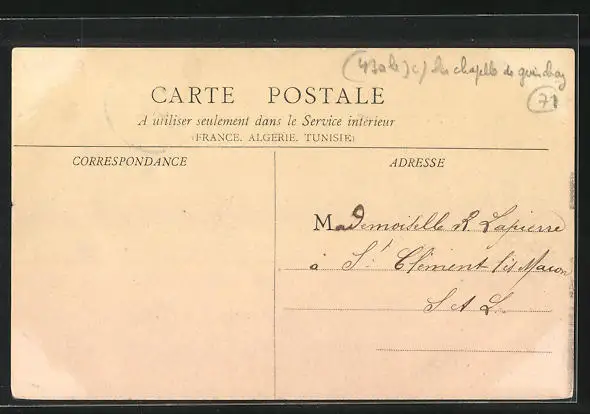 la chapelle de guinchay
71
CARTE POSTALE
A utiliser seulement dans le Service intérieur
(FRANCE, ALGERIE, TUNISIE)
CORRESPONDANCE
ADRESSE
Mademoiselle R. Lapierre
à St Clément lès Macon
S et L.